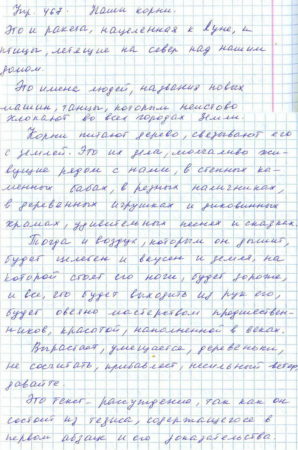 Упр. 467. Наши корни.
Это и ракета, нацеленная к Луне, и
птицы, летящие на север над нашим
домом.
Это имена людей, названия новых
машин, танцы, которым неистово
хлопают во всех городах Земли.
Корни питают дерево, связывают его
с землей. Это их дела, молчаливо жи-
вущие рядом с нами, в стенных ка-
менных бабах, в резных наличниках,
в деревянных игрушках и диковинных
храмах, удивительных песнях и сказках.
Тогда и воздух, которым он дышит,
будет целебен и вкусен и земля, на
которой стоят его ноги, будет дороже,
и все, что будет выходить из рук его,
будет овеяно мастерством предшествен-
ников, красотой, наполненной в веках.
Вырастает, умещается, деревеньки,
не сосчитать, прибавляет, несильный ветер,
давайте.
Это текст - рассуждение, так как он
состоит из тезиса, содержащегося в
первом абзаце и его доказательства.